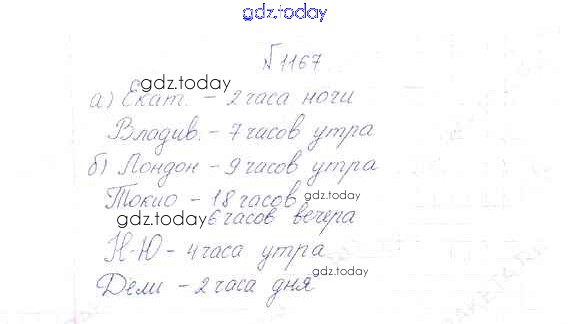 gdz.today
№1167
gdz.today
а) Екат. - 2 часа ночи
Владив. - 7 часов утра
б) Лондон - 9 часов утра
Токио - 18 часов
gdz.today
gdz.today 6 часов вечера
Н-Ю - 4 часа утра
gdz.today
Дели - 2 часа дня